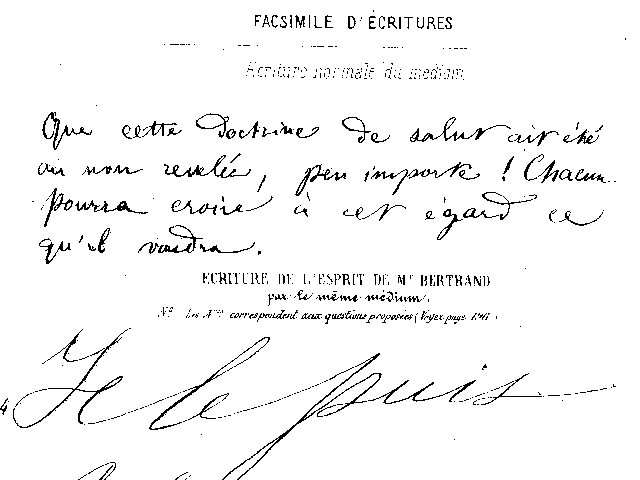 FACSIMILE D'ÉCRITURES
Ecriture normale du medium
Que cette doctrine de salut ait été
ou non revelée, peu importe ! Chacun
pourra croire à cet égard ce
qu'il voudra.
ECRITURE DE L'ESPRIT DE Mr BERTRAND
par le même médium.
Les Nos correspondent aux questions proposées (Voyez page
4 Je le puis